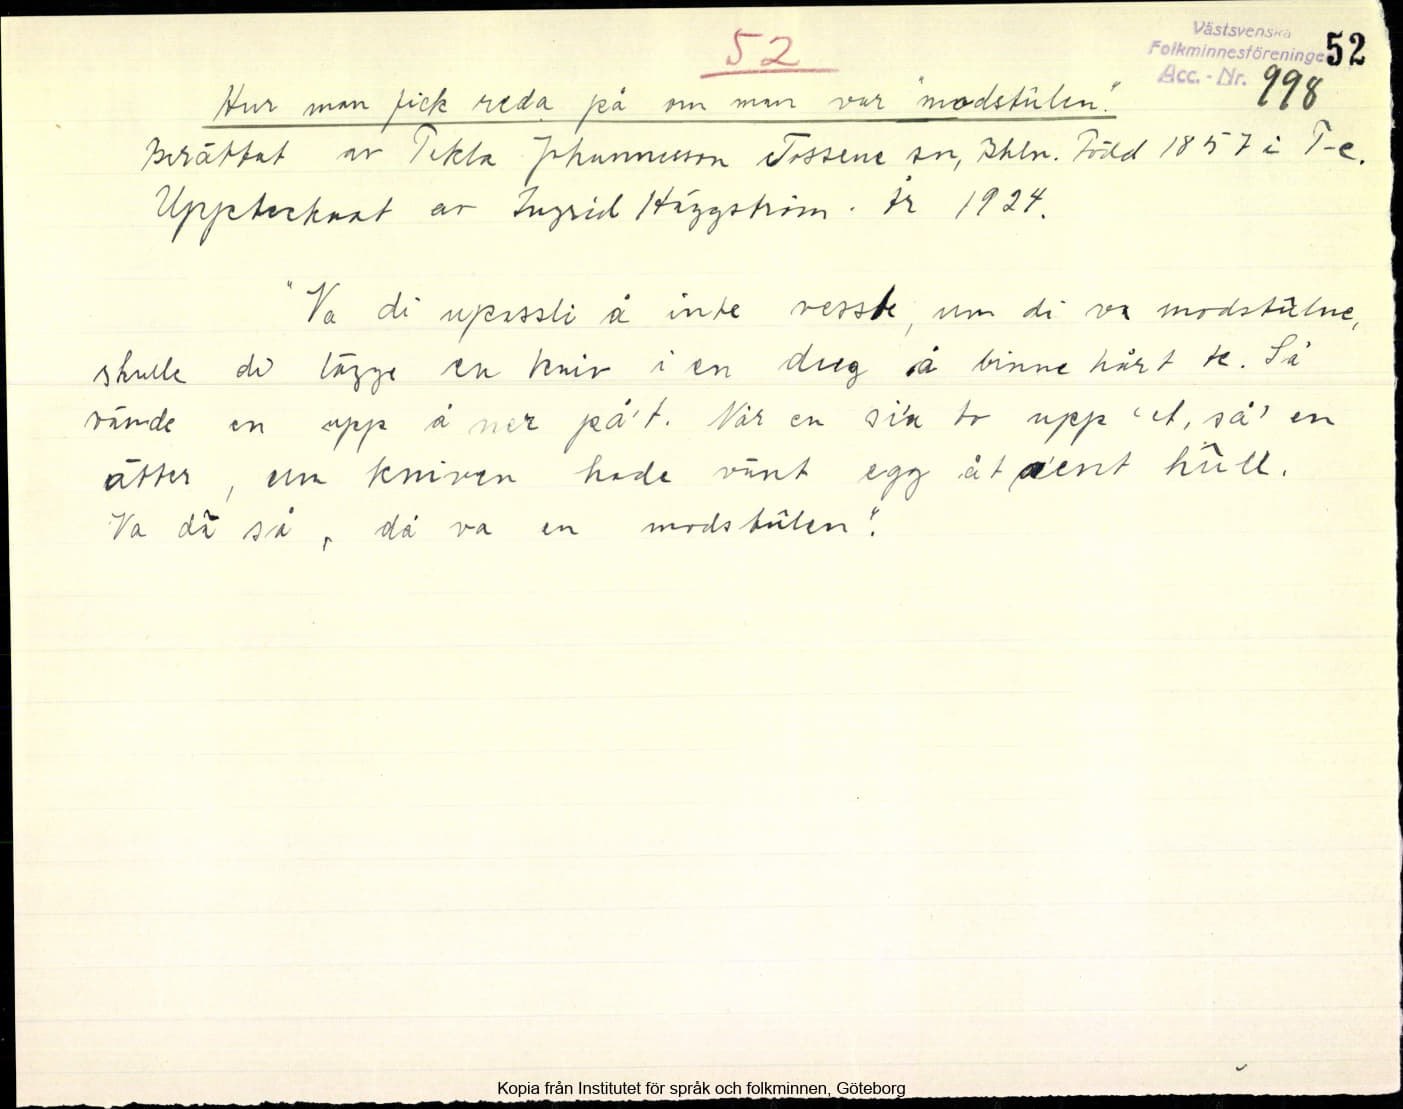 52
Västsvenska
Folkminnesföreninge 52
Acc. - Nr. 998
Hur man fick reda på om man var "modstûlen".
Berättat av Tekla Johannesson Tossene sn, Bhln. Född 1857 i T-e.
Upptecknat av Ingrid Häggström. År 1924.
"Va di upassli å inte vesste, um di va modstûlne,
skulle di lägge en kniv i en dug å binne hårt te. Så
vände en upp å ner på't. När en sia to upp et, så' en
ätter, um kniven hade vänt egg åt ent hûll.
Va dä så, då va en modstûlen".
Kopia från Institutet för språk och folkminnen, Göteborg